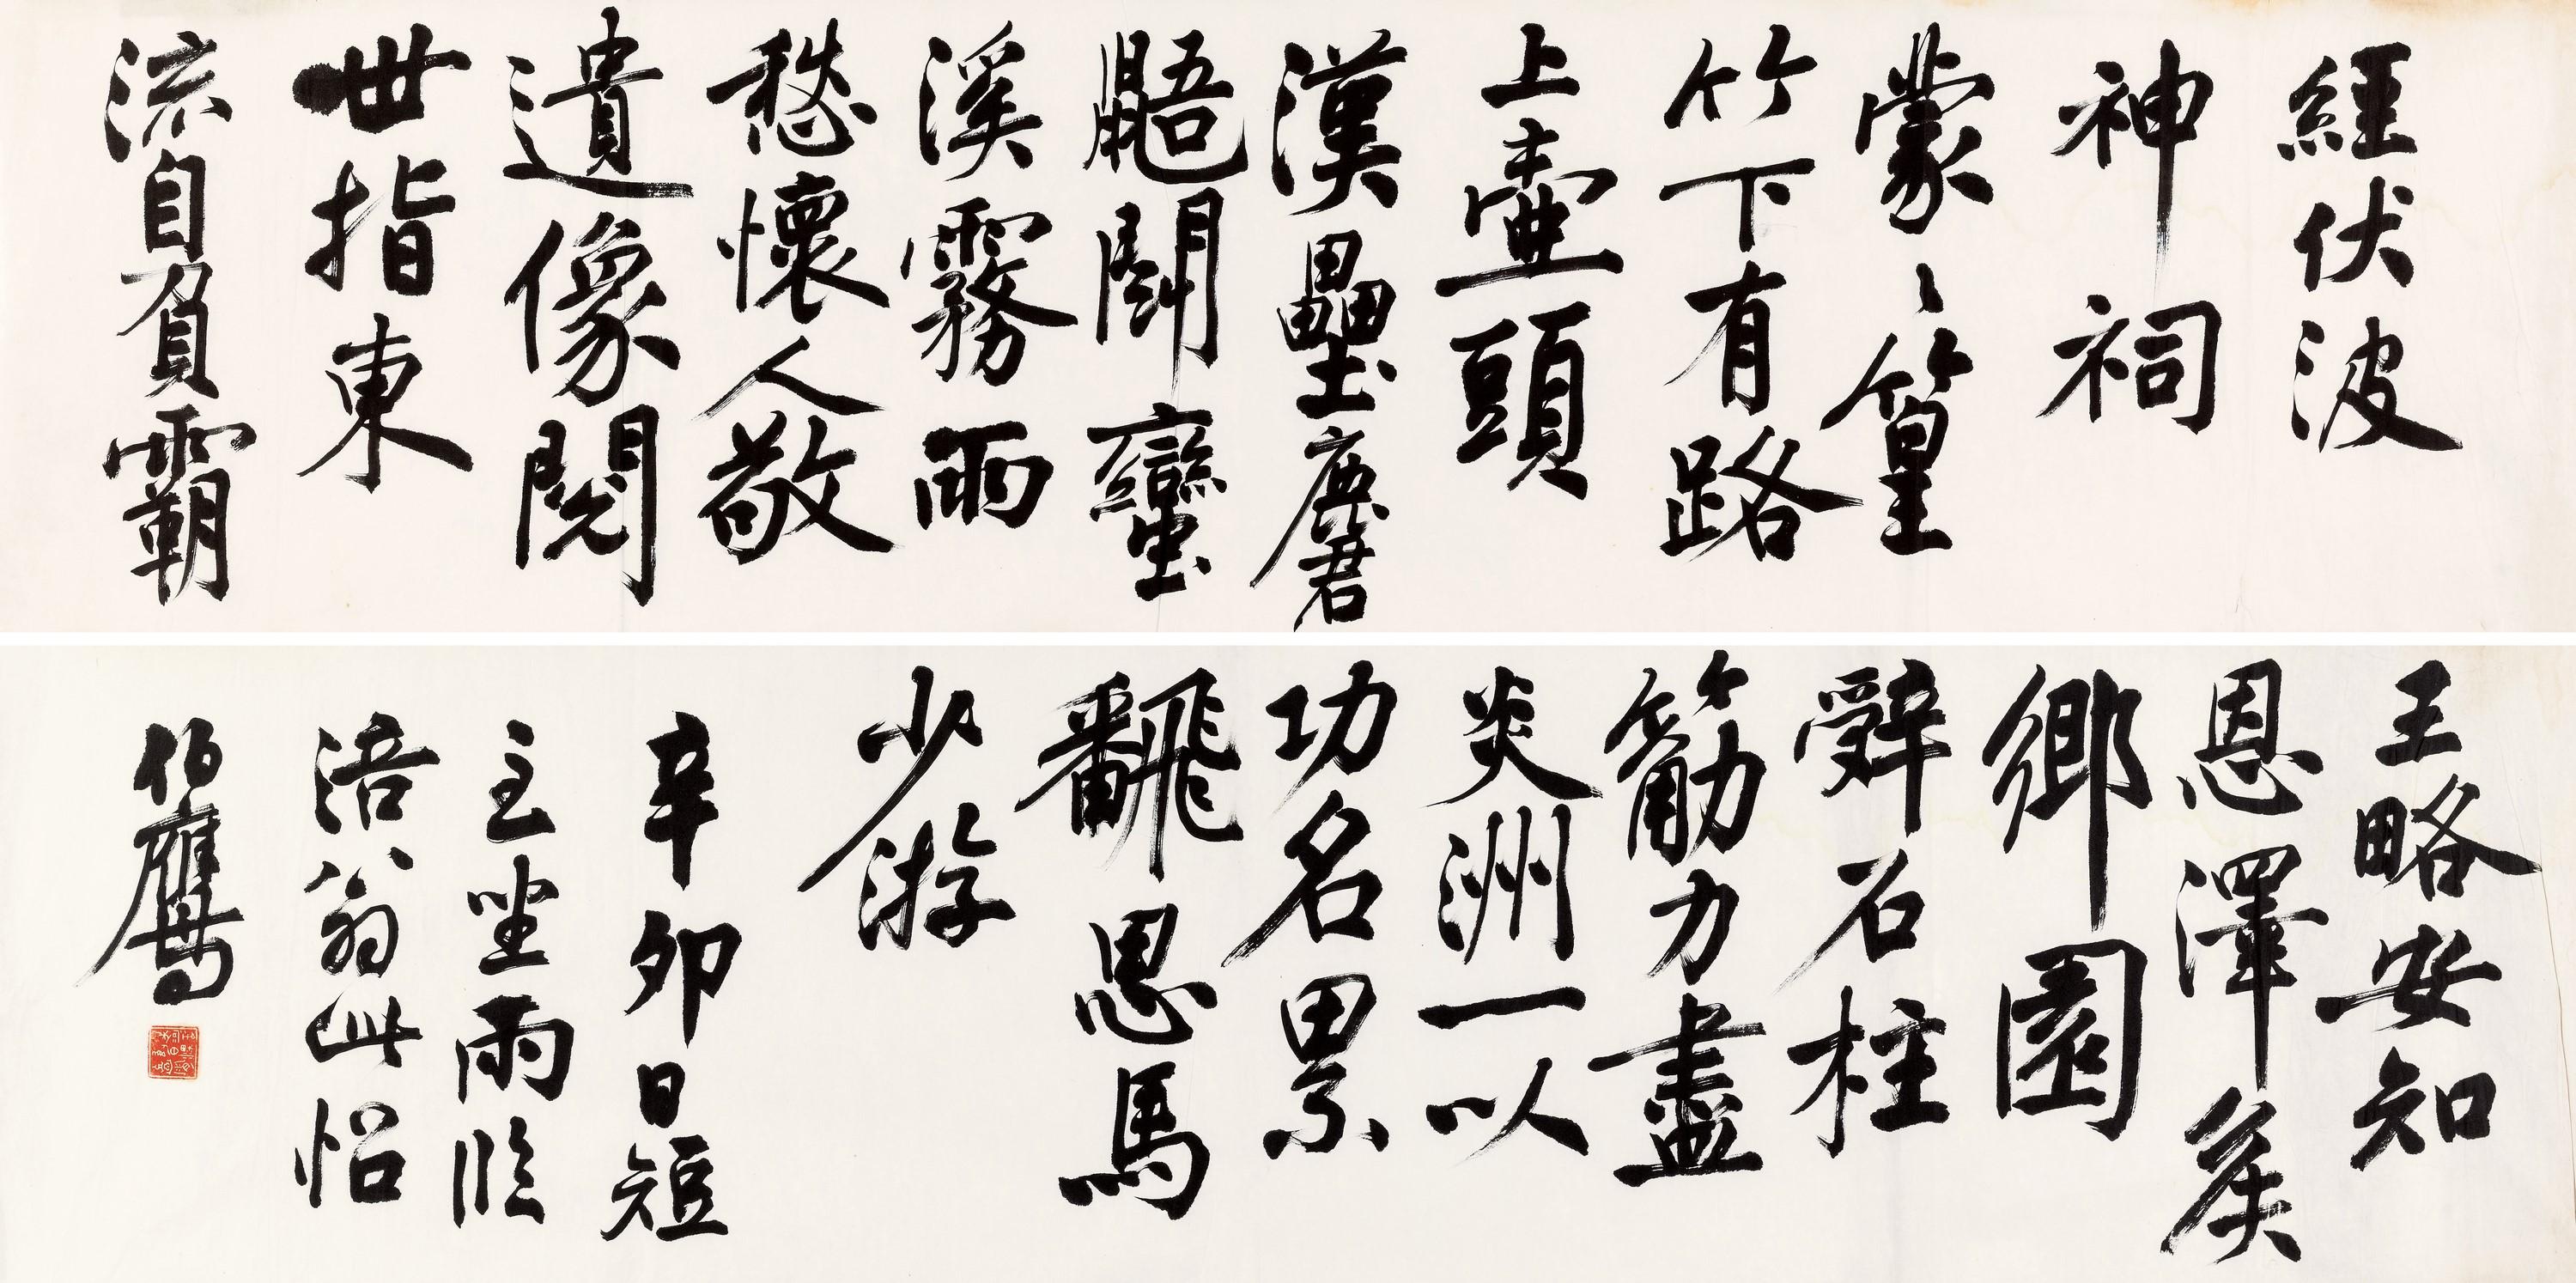 經伏波
神祠
蒙〻篁
竹下有路
上壺頭
漢壘麏
鼯鬭蠻
溪霧雨
愁懷人敬
遺像閱
世指東
流自負霸
王略安知
恩澤矦
鄉園
辤石柱
筋力盡
炎洲一以
功名累
飜思馬
少游
辛卯日短
至坐雨臨
涪翁此
伯鷹